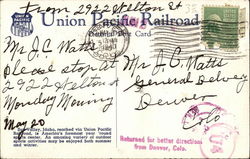 From 2922 Welton St
Union Pacific Railroad
Post Card
Mr J. C Watts
please stop at
2922 Welton st
Monday Morning
May 20
Mr J. C Watts
General Delvery
Denver
Colo
Valley, Idaho, reached via Union Pacific
Railroad, is America's foremost year 'round
sports center. An amazing variety of outdoor
sports activities may be enjoyed both summer
and winter.
Returned for better directions
from Denver, Colo.